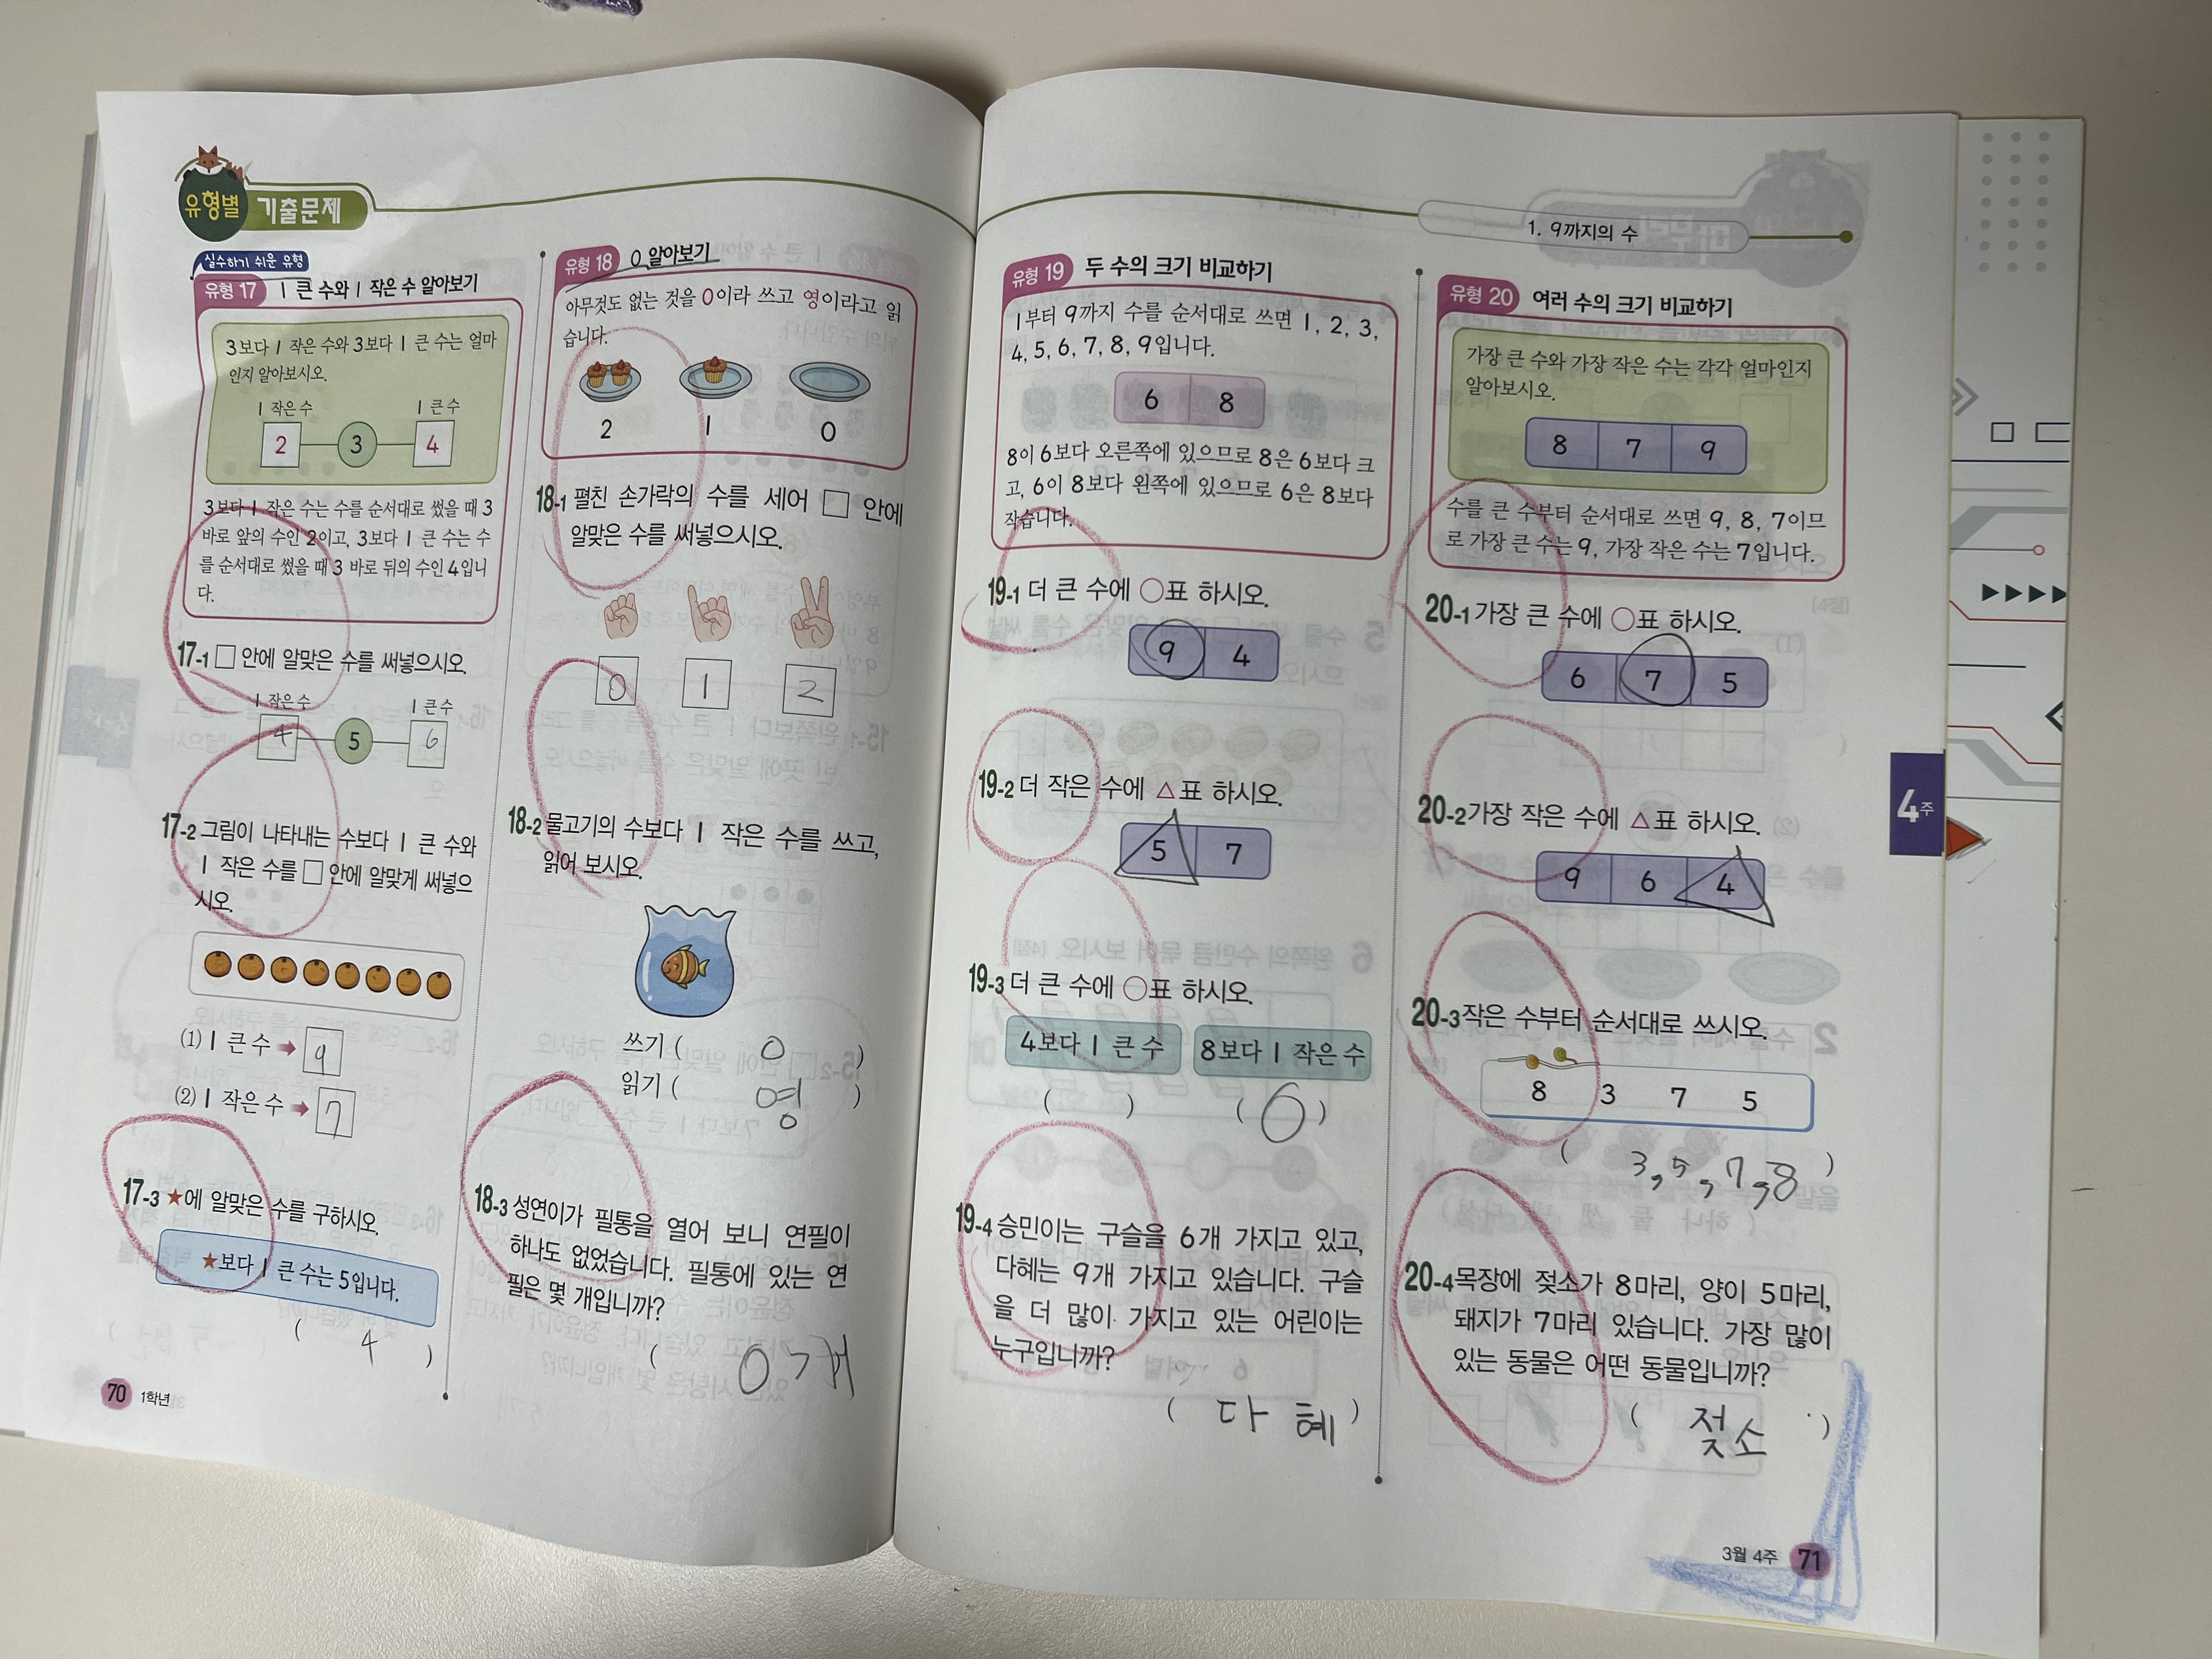 유형별 기출문제
실수하기 쉬운 유형
유형 17 1 큰 수와 1 작은 수 알아보기
3보다 1 작은 수와 3보다 1 큰 수는 얼마
인지 알아보시오.
1 작은 수 1 큰 수
2 3 4
3보다 1 작은 수는 수를 순서대로 썼을 때 3
바로 앞의 수인 2이고, 3보다 1 큰 수는 수
를 순서대로 썼을 때 3 바로 뒤의 수인 4입니
다.
17-1 □ 안에 알맞은 수를 써넣으시오.
1 작은 수 1 큰 수
4 5 6
17-2 그림이 나타내는 수보다 1 큰 수와
1 작은 수를 □ 안에 알맞게 써넣으
시오.
(1) 1 큰 수 → 9
(2) 1 작은 수 → 7
17-3 ★에 알맞은 수를 구하시오.
★보다 1 큰 수는 5입니다.
( 4 )
70 1학년
유형 18 0 알아보기
아무것도 없는 것을 0이라 쓰고 영이라고 읽
습니다.
2 1 0
18-1 펼친 손가락의 수를 세어 □ 안에
알맞은 수를 써넣으시오.
0 1 2
18-2 물고기의 수보다 1 작은 수를 쓰고,
읽어 보시오.
쓰기 ( 0 )
읽기 ( 영 )
18-3 성연이가 필통을 열어 보니 연필이
하나도 없었습니다. 필통에 있는 연
필은 몇 개입니까?
( 0개
1. 9까지의 수
유형 19 두 수의 크기 비교하기
1부터 9까지 수를 순서대로 쓰면 1, 2, 3,
4, 5, 6, 7, 8, 9입니다.
6 8
8이 6보다 오른쪽에 있으므로 8은 6보다 크
고, 6이 8보다 왼쪽에 있으므로 6은 8보다
작습니다.
19-1 더 큰 수에 ○표 하시오.
9 4
19-2 더 작은 수에 △표 하시오.
5 7
19-3 더 큰 수에 ○표 하시오.
4보다 1 큰 수 8보다 1 작은 수
( ) ( )
19-4 승민이는 구슬을 6개 가지고 있고,
다혜는 9개 가지고 있습니다. 구슬
을 더 많이 가지고 있는 어린이는
누구입니까?
( 다 혜 )
유형 20 여러 수의 크기 비교하기
가장 큰 수와 가장 작은 수는 각각 얼마인지
알아보시오.
8 7 9
수를 큰 수부터 순서대로 쓰면 9, 8, 7이므
로 가장 큰 수는 9, 가장 작은 수는 7입니다.
20-1 가장 큰 수에 ○표 하시오.
6 7 5
20-2 가장 작은 수에 △표 하시오.
9 6 4
20-3 작은 수부터 순서대로 쓰시오.
8 3 7 5
( 3, 5, 7, 8 )
20-4 목장에 젖소가 8마리, 양이 5마리,
돼지가 7마리 있습니다. 가장 많이
있는 동물은 어떤 동물입니까?
( 젖소 )
4주
3월 4주 71